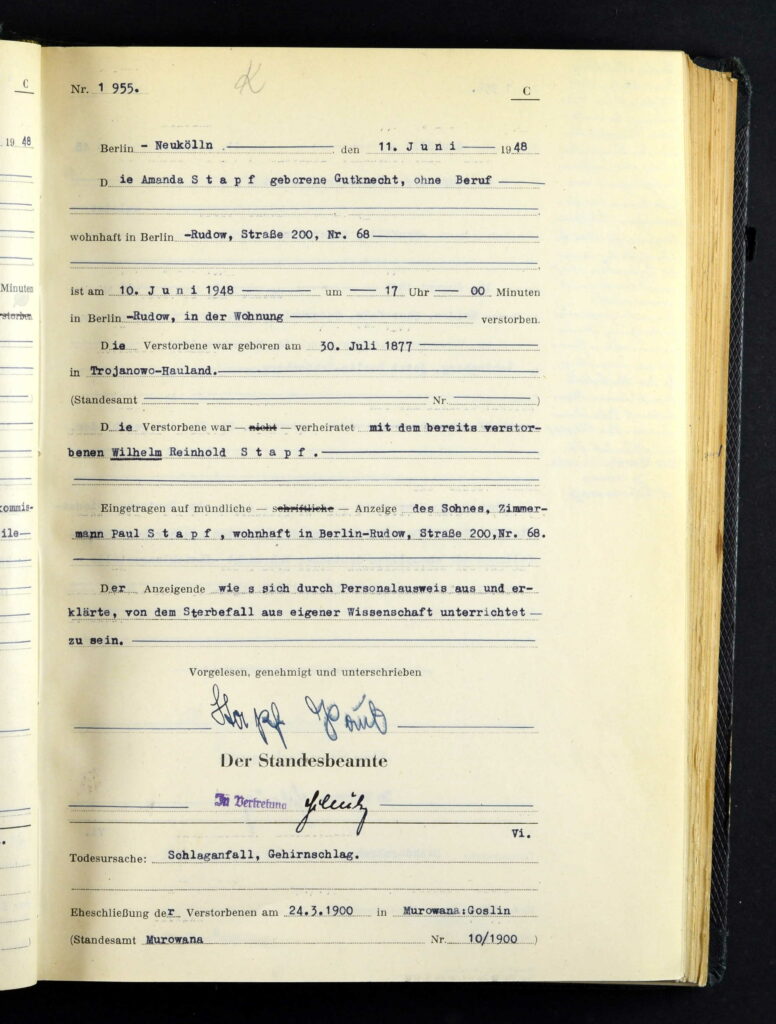 C
19 48
Minuten
storben
kommis-
ile—
Nr. 1 955.
C
Berlin - Neukölln den 11. J u n i 1948
D ie Amanda S t a p f geborene Gutknecht, ohne Beruf
wohnhaft in Berlin -Rudow, Straße 200, Nr. 68
ist am 10. J u n i 1948 um 17 Uhr 00 Minuten
in Berlin -Rudow, in der Wohnung verstorben.
D ie Verstorbene war geboren am 30. Juli 1877
in Trojanowo-Hauland.
(Standesamt Nr. )
D ie Verstorbene war — nicht — verheiratet mit dem bereits verstor-
benen Wilhelm Reinhold S t a p f .
Eingetragen auf mündliche — schriftliche — Anzeige des Sohnes, Zimmer-
mann Paul S t a p f , wohnhaft in Berlin-Rudow, Straße 200,Nr. 68.
Der Anzeigende wie s sich durch Personalausweis aus und er-
klärte, von dem Sterbefall aus eigener Wissenschaft unterrichtet —
zu sein.
Vorgelesen, genehmigt und unterschrieben
Stapf Paul
Der Standesbeamte
In Vertretung
Vi.
Todesursache: Schlaganfall, Gehirnschlag.
Eheschließung der Verstorbenen am 24.3.1900 in Murowana:Goslin
(Standesamt Murowana Nr. 10/1900 )